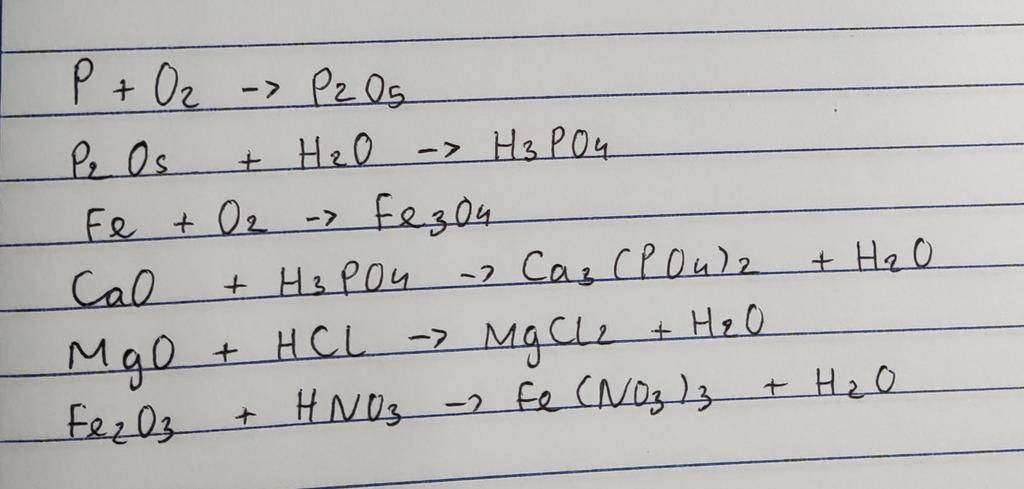 P + O2 -> P2O5
P2O5 + H2O -> H3PO4
Fe + O2 -> Fe3O4
CaO + H3PO4 -> Ca3(PO4)2 + H2O
MgO + HCl -> MgCl2 + H2O
Fe2O3 + HNO3 -> Fe(NO3)3 + H2O